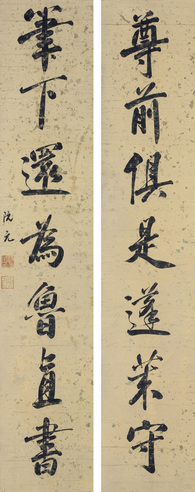 尊前俱是蓬萊守
筆下還為魯直書
阮元